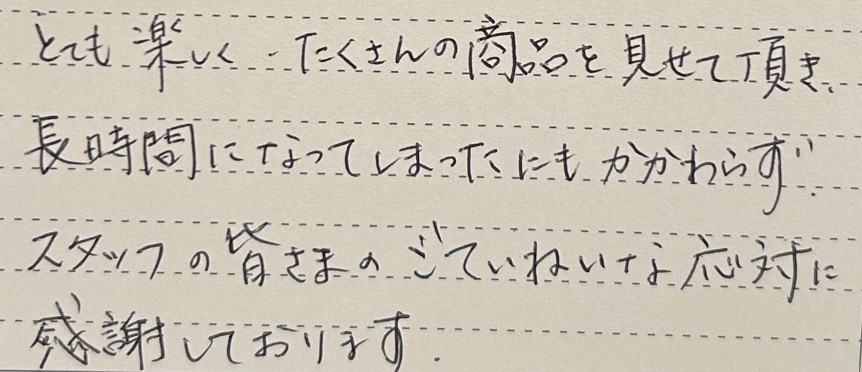 とても楽しく、たくさんの商品を見せて頂き、
長時間になってしまったにもかかわらず、
スタッフの皆さまのごていねいな応対に
感謝しております.